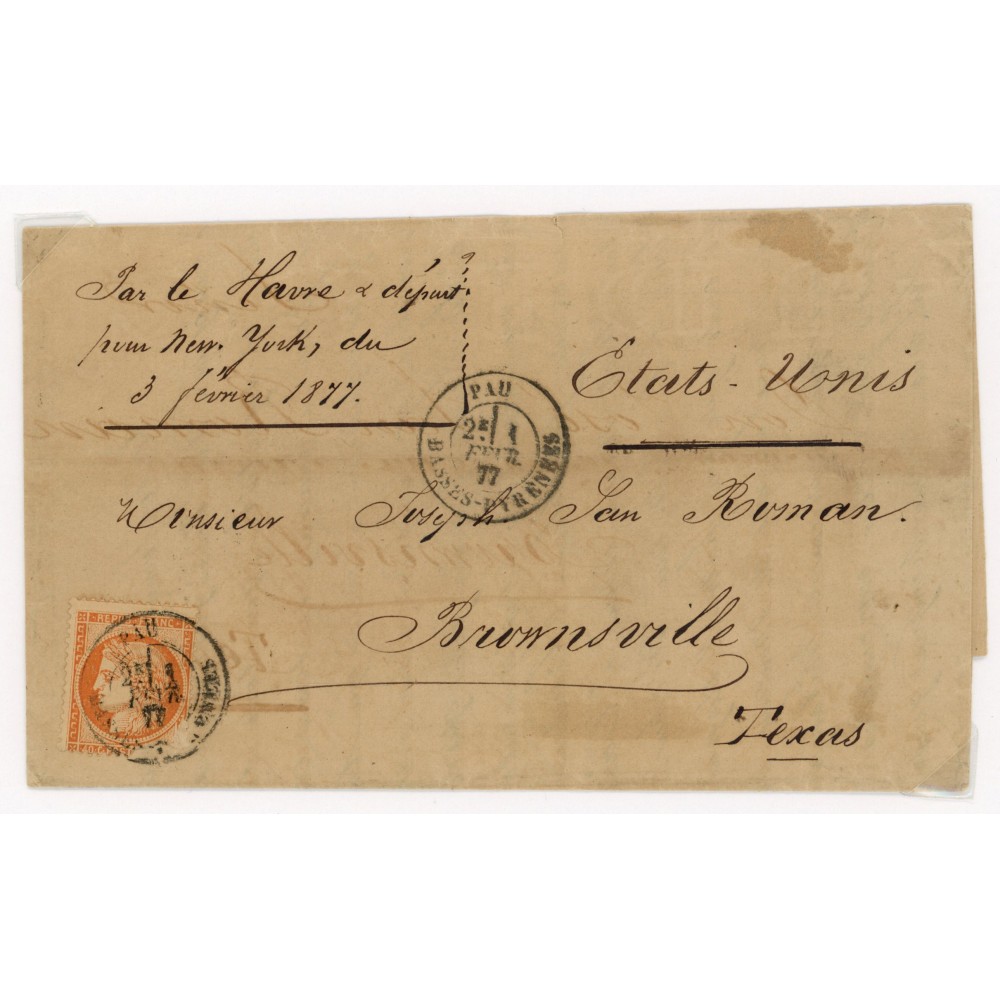 Par le Havre & départ
pour New-York, du
3 février 1877.
Etats-Unis
PAU
2E 1
FEVR.
77
BASSES-PYRENEES
Monsieur Joseph San Roman.
Brownsville
Texas
REPUB FRANC
PAU
2E 1
FEVR.
77